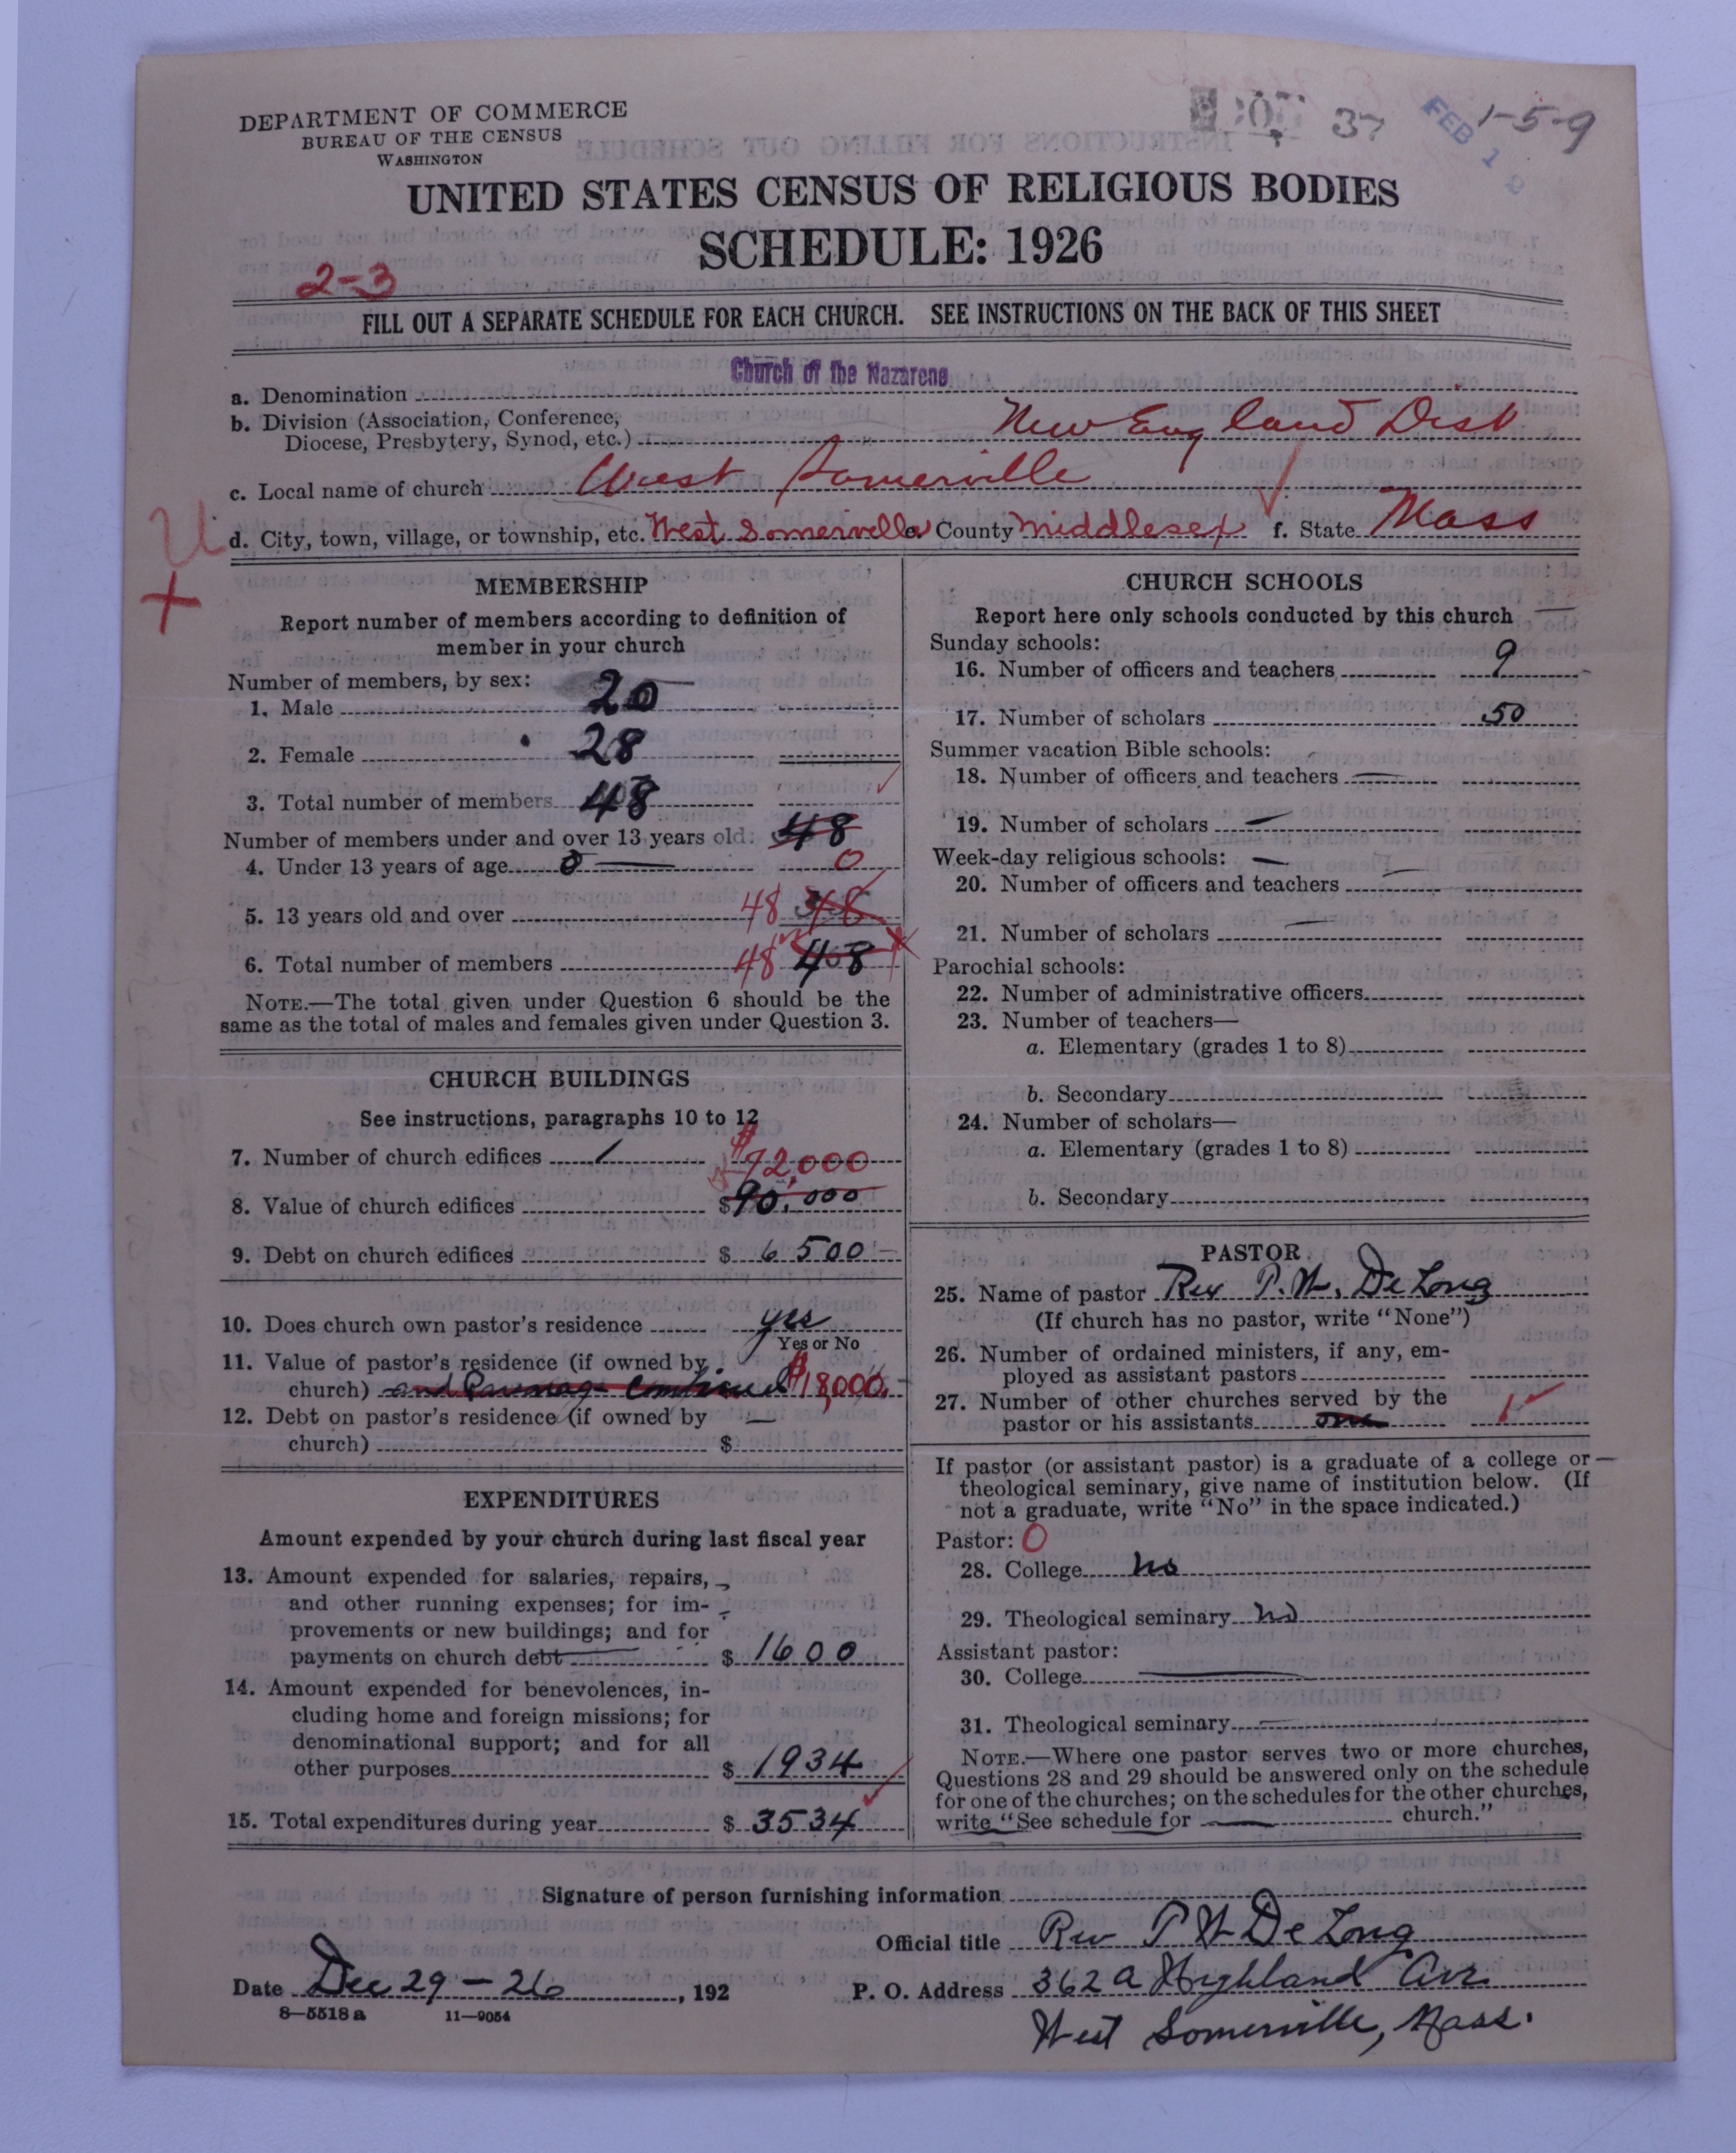 DEPARTMENT OF COMMERCE
BUREAU OF THE CENSUS
WASHINGTON
37
FEB 1
1-5-9
UNITED STATES CENSUS OF RELIGIOUS BODIES
SCHEDULE: 1926
2-3
FILL OUT A SEPARATE SCHEDULE FOR EACH CHURCH. SEE INSTRUCTIONS ON THE BACK OF THIS SHEET
a. Denomination Church of the Nazarene
b. Division (Association, Conference,
Diocese, Presbytery, Synod, etc.) New England Dist
c. Local name of church West Somerville
d. City, town, village, or township, etc. West Somerville e. County Middlesex f. State Mass
U
+
MEMBERSHIP
Report number of members according to definition of
member in your church
Number of members, by sex:
1. Male 20
2. Female 28
3. Total number of members 48
Number of members under and over 13 years old: 48
4. Under 13 years of age 0 0
5. 13 years old and over 48
6. Total number of members 48 48
NOTE.—The total given under Question 6 should be the
same as the total of males and females given under Question 3.
CHURCH BUILDINGS
See instructions, paragraphs 10 to 12
7. Number of church edifices 1
$72,000
8. Value of church edifices $90,000
9. Debt on church edifices $ 6500
10. Does church own pastor's residence yes
Yes or No
11. Value of pastor's residence (if owned by
church) and Parsonage Combined $18,000
12. Debt on pastor's residence (if owned by
church) $
EXPENDITURES
Amount expended by your church during last fiscal year
13. Amount expended for salaries, repairs,
and other running expenses; for im-
provements or new buildings; and for
payments on church debt $ 1600
14. Amount expended for benevolences, in-
cluding home and foreign missions; for
denominational support; and for all
other purposes $ 1934
15. Total expenditures during year $ 3534
CHURCH SCHOOLS
Report here only schools conducted by this church
Sunday schools:
16. Number of officers and teachers 9
17. Number of scholars 50
Summer vacation Bible schools:
18. Number of officers and teachers —
19. Number of scholars —
Week-day religious schools: —
20. Number of officers and teachers —
21. Number of scholars —
Parochial schools:
22. Number of administrative officers
23. Number of teachers—
a. Elementary (grades 1 to 8)
b. Secondary
24. Number of scholars—
a. Elementary (grades 1 to 8)
b. Secondary
PASTOR
25. Name of pastor Rev P. W. De Long
(If church has no pastor, write "None")
26. Number of ordained ministers, if any, em-
ployed as assistant pastors
27. Number of other churches served by the
pastor or his assistants one 1
If pastor (or assistant pastor) is a graduate of a college or
theological seminary, give name of institution below. (If
not a graduate, write "No" in the space indicated.)
Pastor: 0
28. College no
29. Theological seminary no
Assistant pastor:
30. College
31. Theological seminary
NOTE.—Where one pastor serves two or more churches,
Questions 28 and 29 should be answered only on the schedule
for one of the churches; on the schedules for the other churches,
write "See schedule for church."
Signature of person furnishing information
Official title Rev P W De Long
Date Dec 29 - 26, 192
P. O. Address 362 a Highland Ave
West Somerville, Mass.
8—5518 a 11—9054